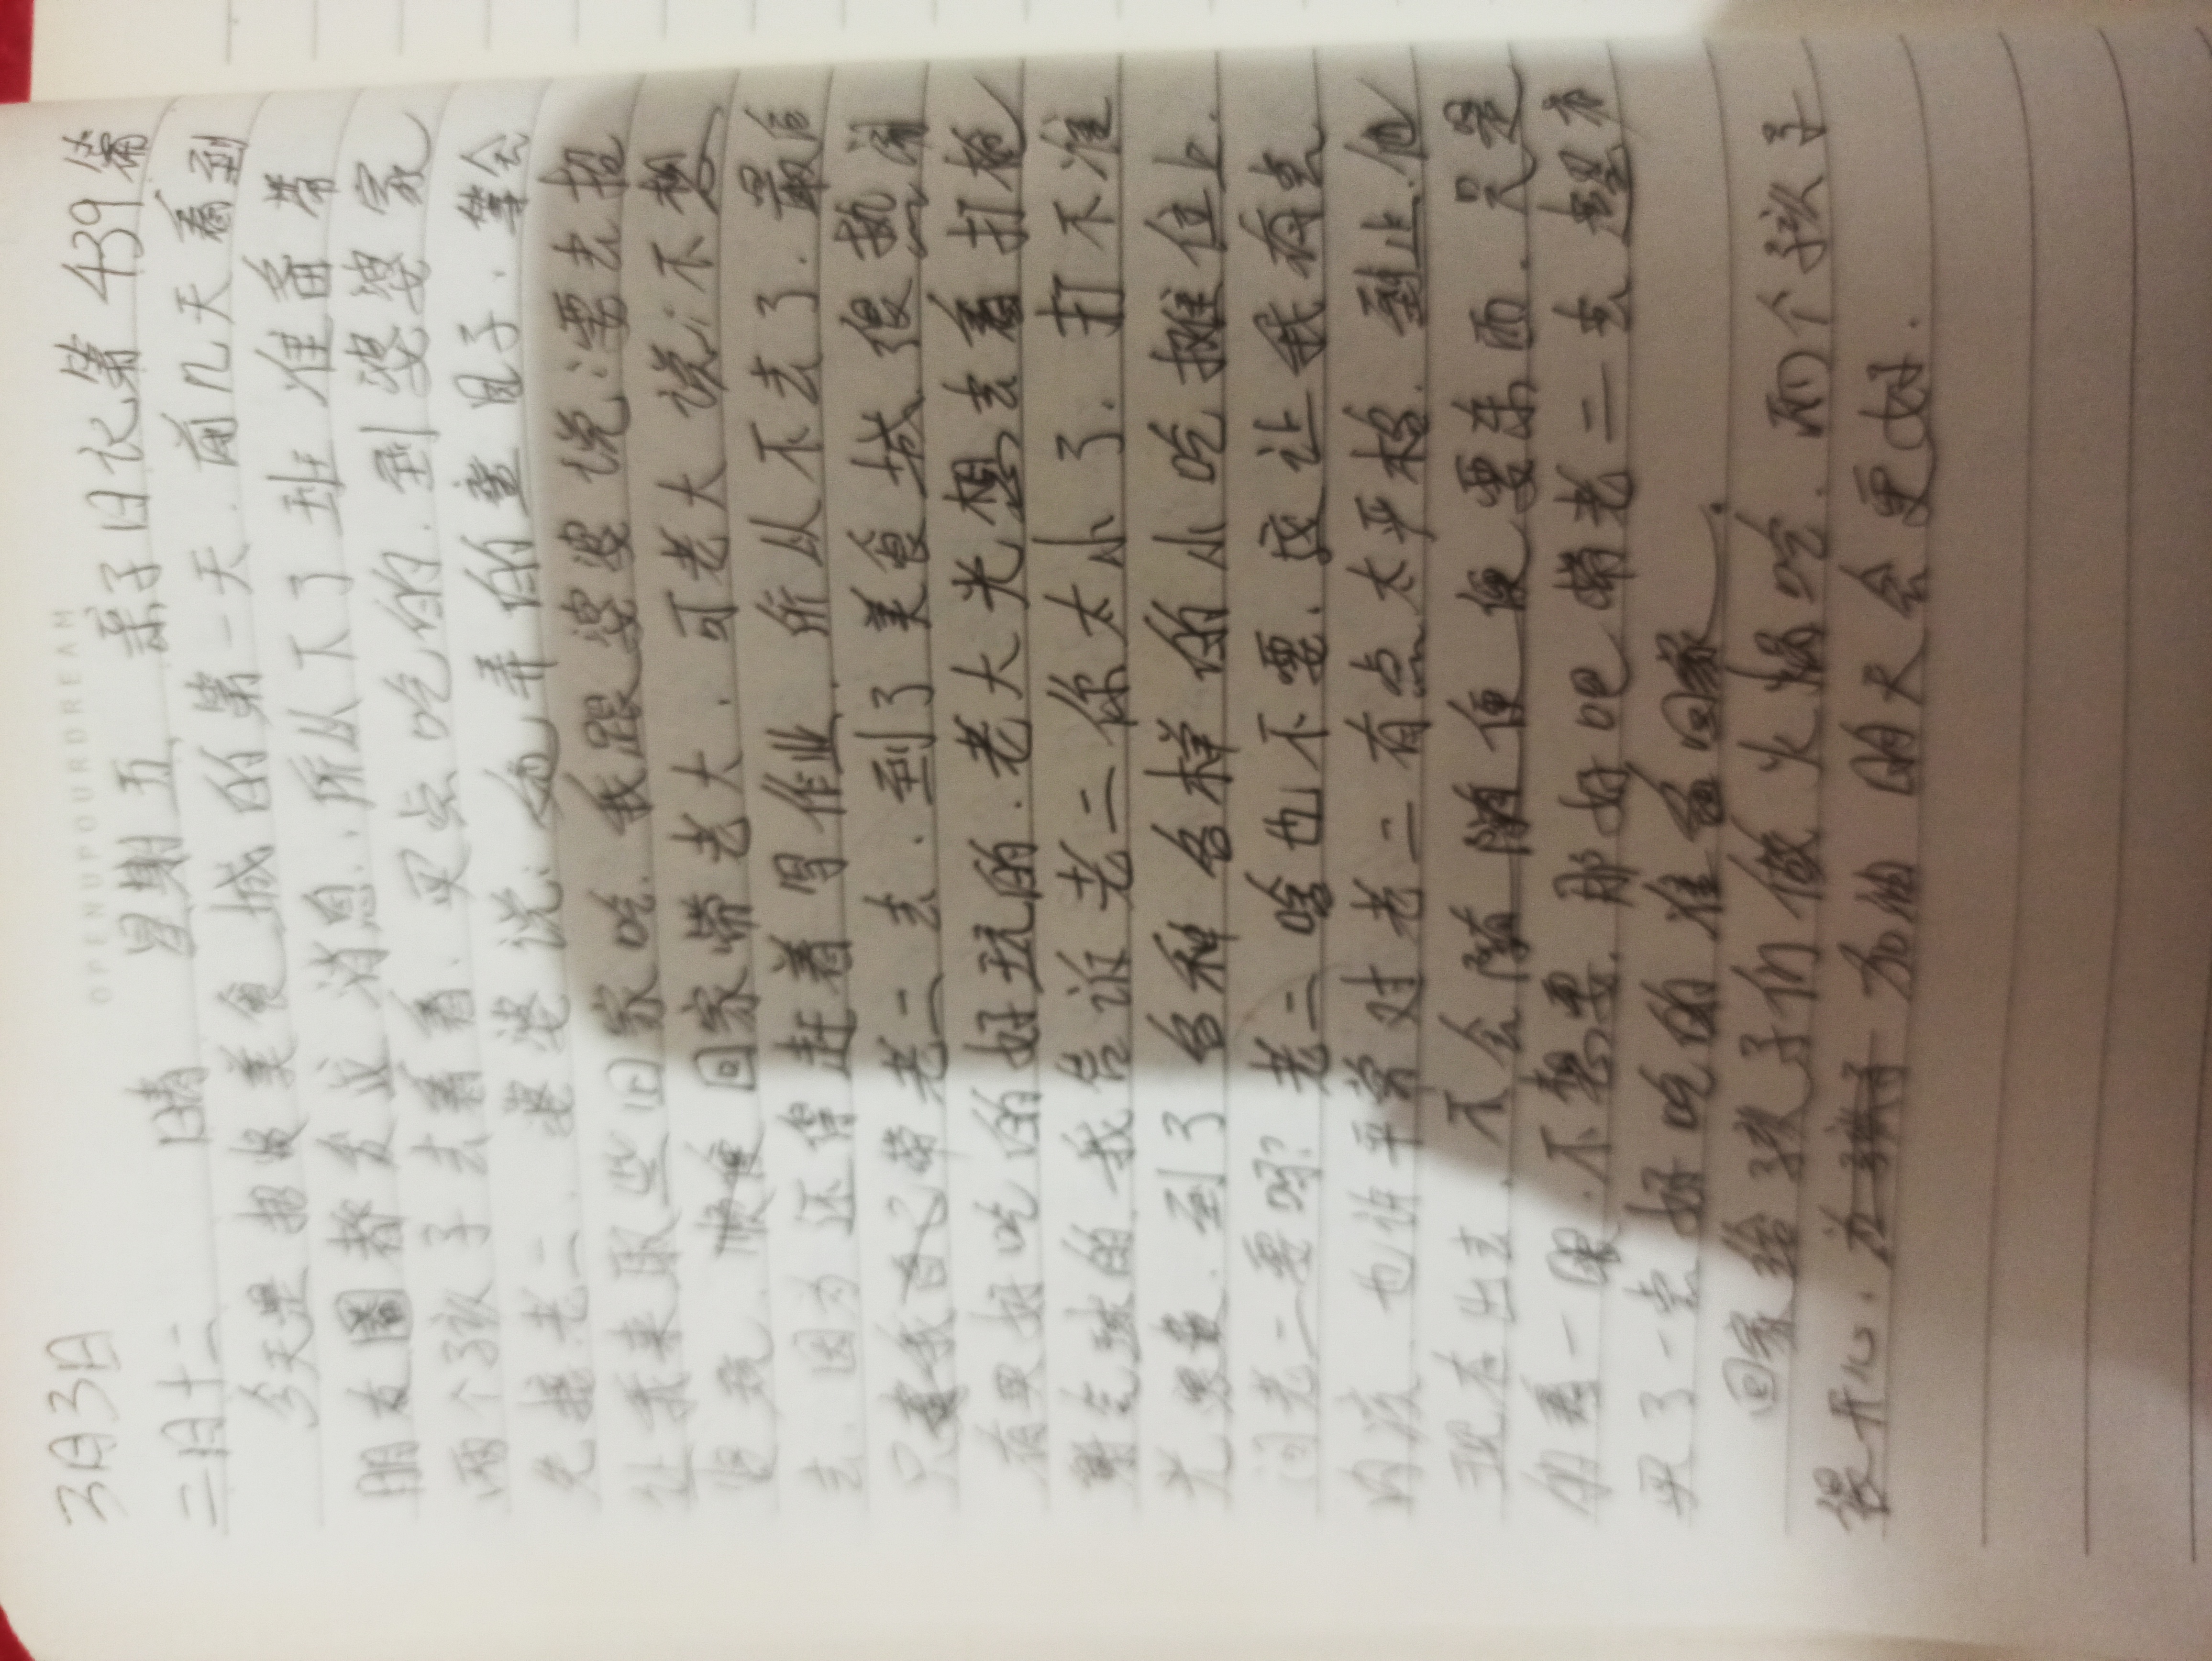 OPENUPYOURDREAM
3月3日 星期五 亲子日记第439篇
二月十二 晴
今天是 美食城的第一天.前几天看到
朋友圈都发这消息.所以下了班准备带
两个孩子去看看.买点吃的.到婆婆家
先接老二.婆婆说:她弄的 等会
让我来取些回家吃.我跟婆婆说:需要去接
回家带老大.可老大说:不想
去.因为还得赶着写作业.所以不去了.最后
只 我自己带老二去.到了美食城很热闹
有 好吃的好玩的.老大光想去看打枪
射气球的.我告诉老二你太小了.打不准
到了各种各样的小吃摊位上.
问老二要吗?老二啥也不要.这让我有点
内疚.也许平常对老二有点太严格.到止.他
现在出去.不会随随便便要东西.只是
看一眼.不想要.那好吧带老二去 有
买了一点好吃的准备回家.
回家给孩子们做火锅吃.两个孩子
很开心. 加油 明天会更好.